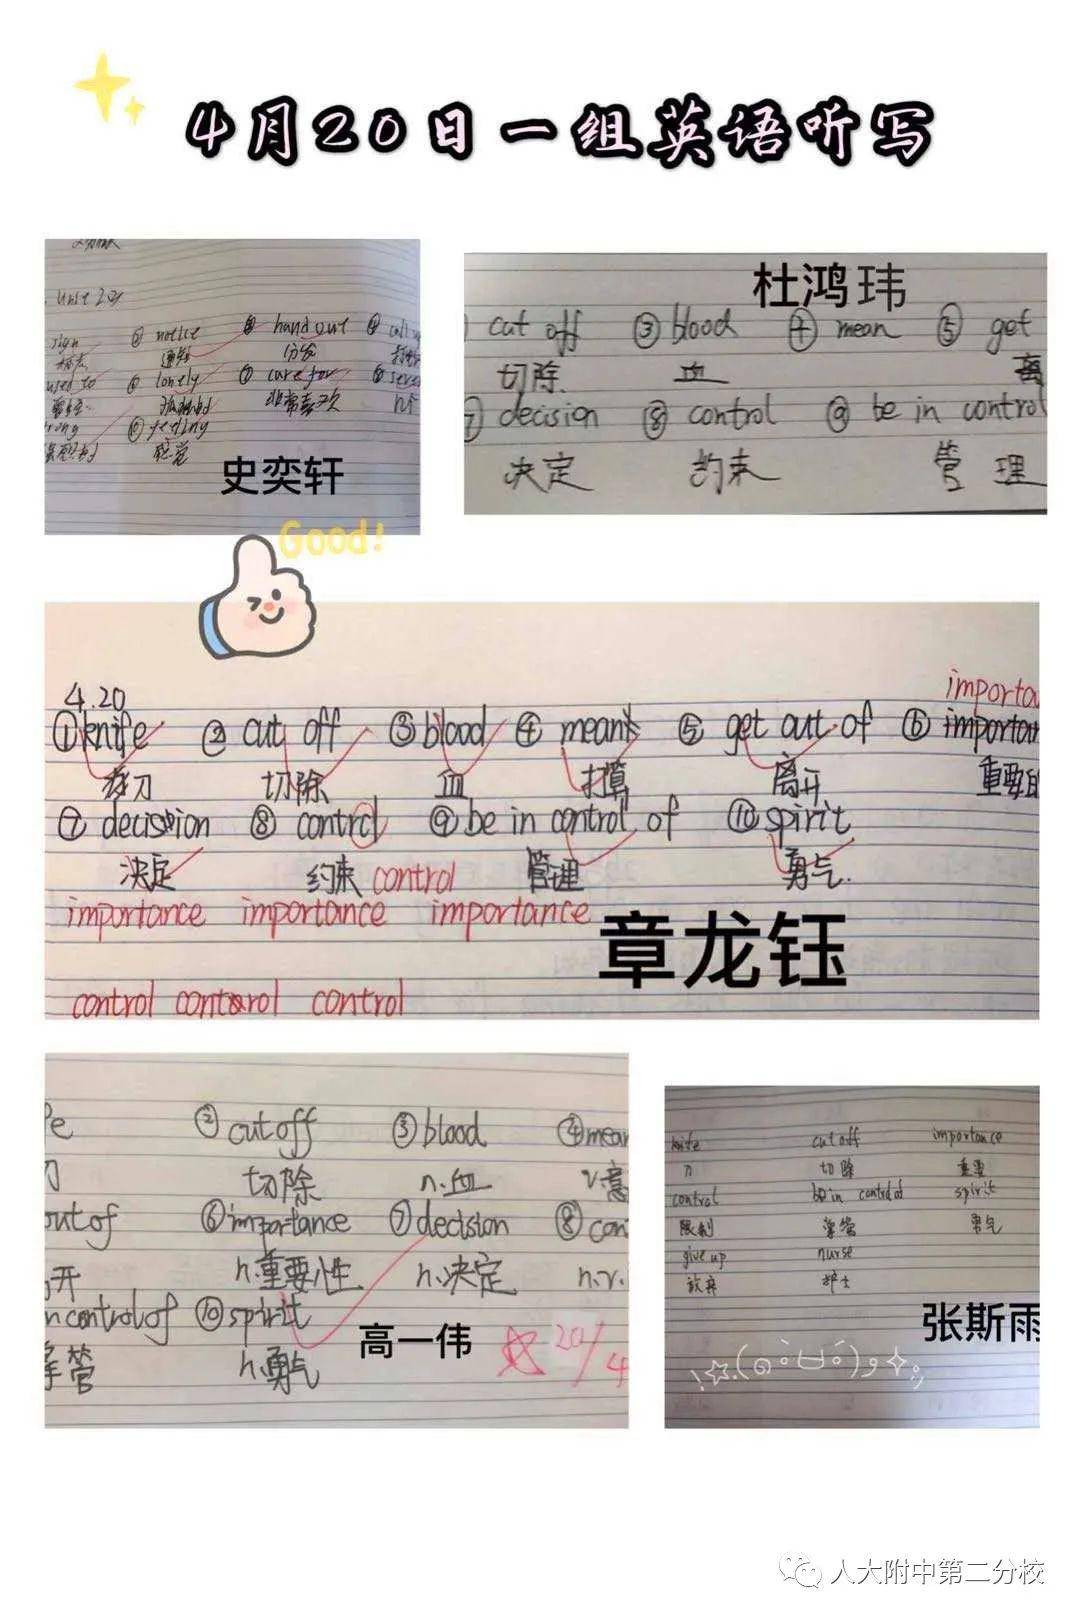 4月20日一组英语听写
sign ② notice ③ hand out ④
通知 分发
used to ⑥ lonely ⑦ care for ⑧
孤独的 非常喜欢
⑩ feeling
感觉
史奕轩
Good!
杜鸿玮
cut off ③ blood ④ mean ⑤ get
切除 血 离
⑦ decision ⑧ control ⑨ be in control
决定 约束 管理
4.20
importa
① knife ② cut off ③ blood ④ meant ⑤ get out of ⑥ importan
切除 血 打算 离开 重要
⑦ decision ⑧ control ⑨ be in control of ⑩ spirit
决定 约束 control 管理 勇气.
importance importance importance
章龙钰
control control control
② cut off ③ blood ④ mean
刀 切除 n.血 v.意
out of ⑥ importance ⑦ decision ⑧ con
开 n.重要性 n.决定 n.v.
n control of ⑩ spirit
掌管 n.勇气
高一伟
20/4
knife cut off importance
刀 切除 重要
control be in control of spirit
限制 掌管 勇气
give up nurse
放弃 护士
张斯雨
人大附中第二分校